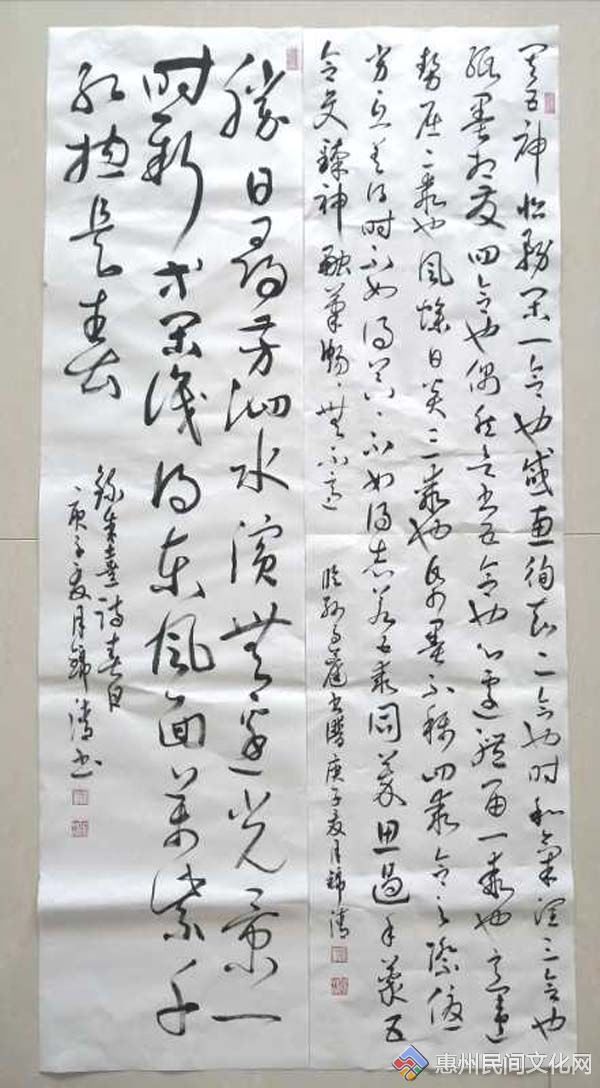 其五神怡務閑一合也感惠徇知二合也時和氣潤三合也
紙墨相發四合也偶然欲書五合也心遽體留一乖也意違
勢屈二乖也風燥日炎三乖也紙墨不稱四乖合之際優
劣互差得時不如得器〻不如得志若五乖同萃思遏手蒙五
合交臻神融筆暢〻無不適
臨孫過庭書譜庚子夏月
勝日尋芳泗水濱無邊光景一
時新等閑識得東風面萬紫千
紅總是春
錄朱熹詩春日
庚子夏月 書
惠州民间文化网